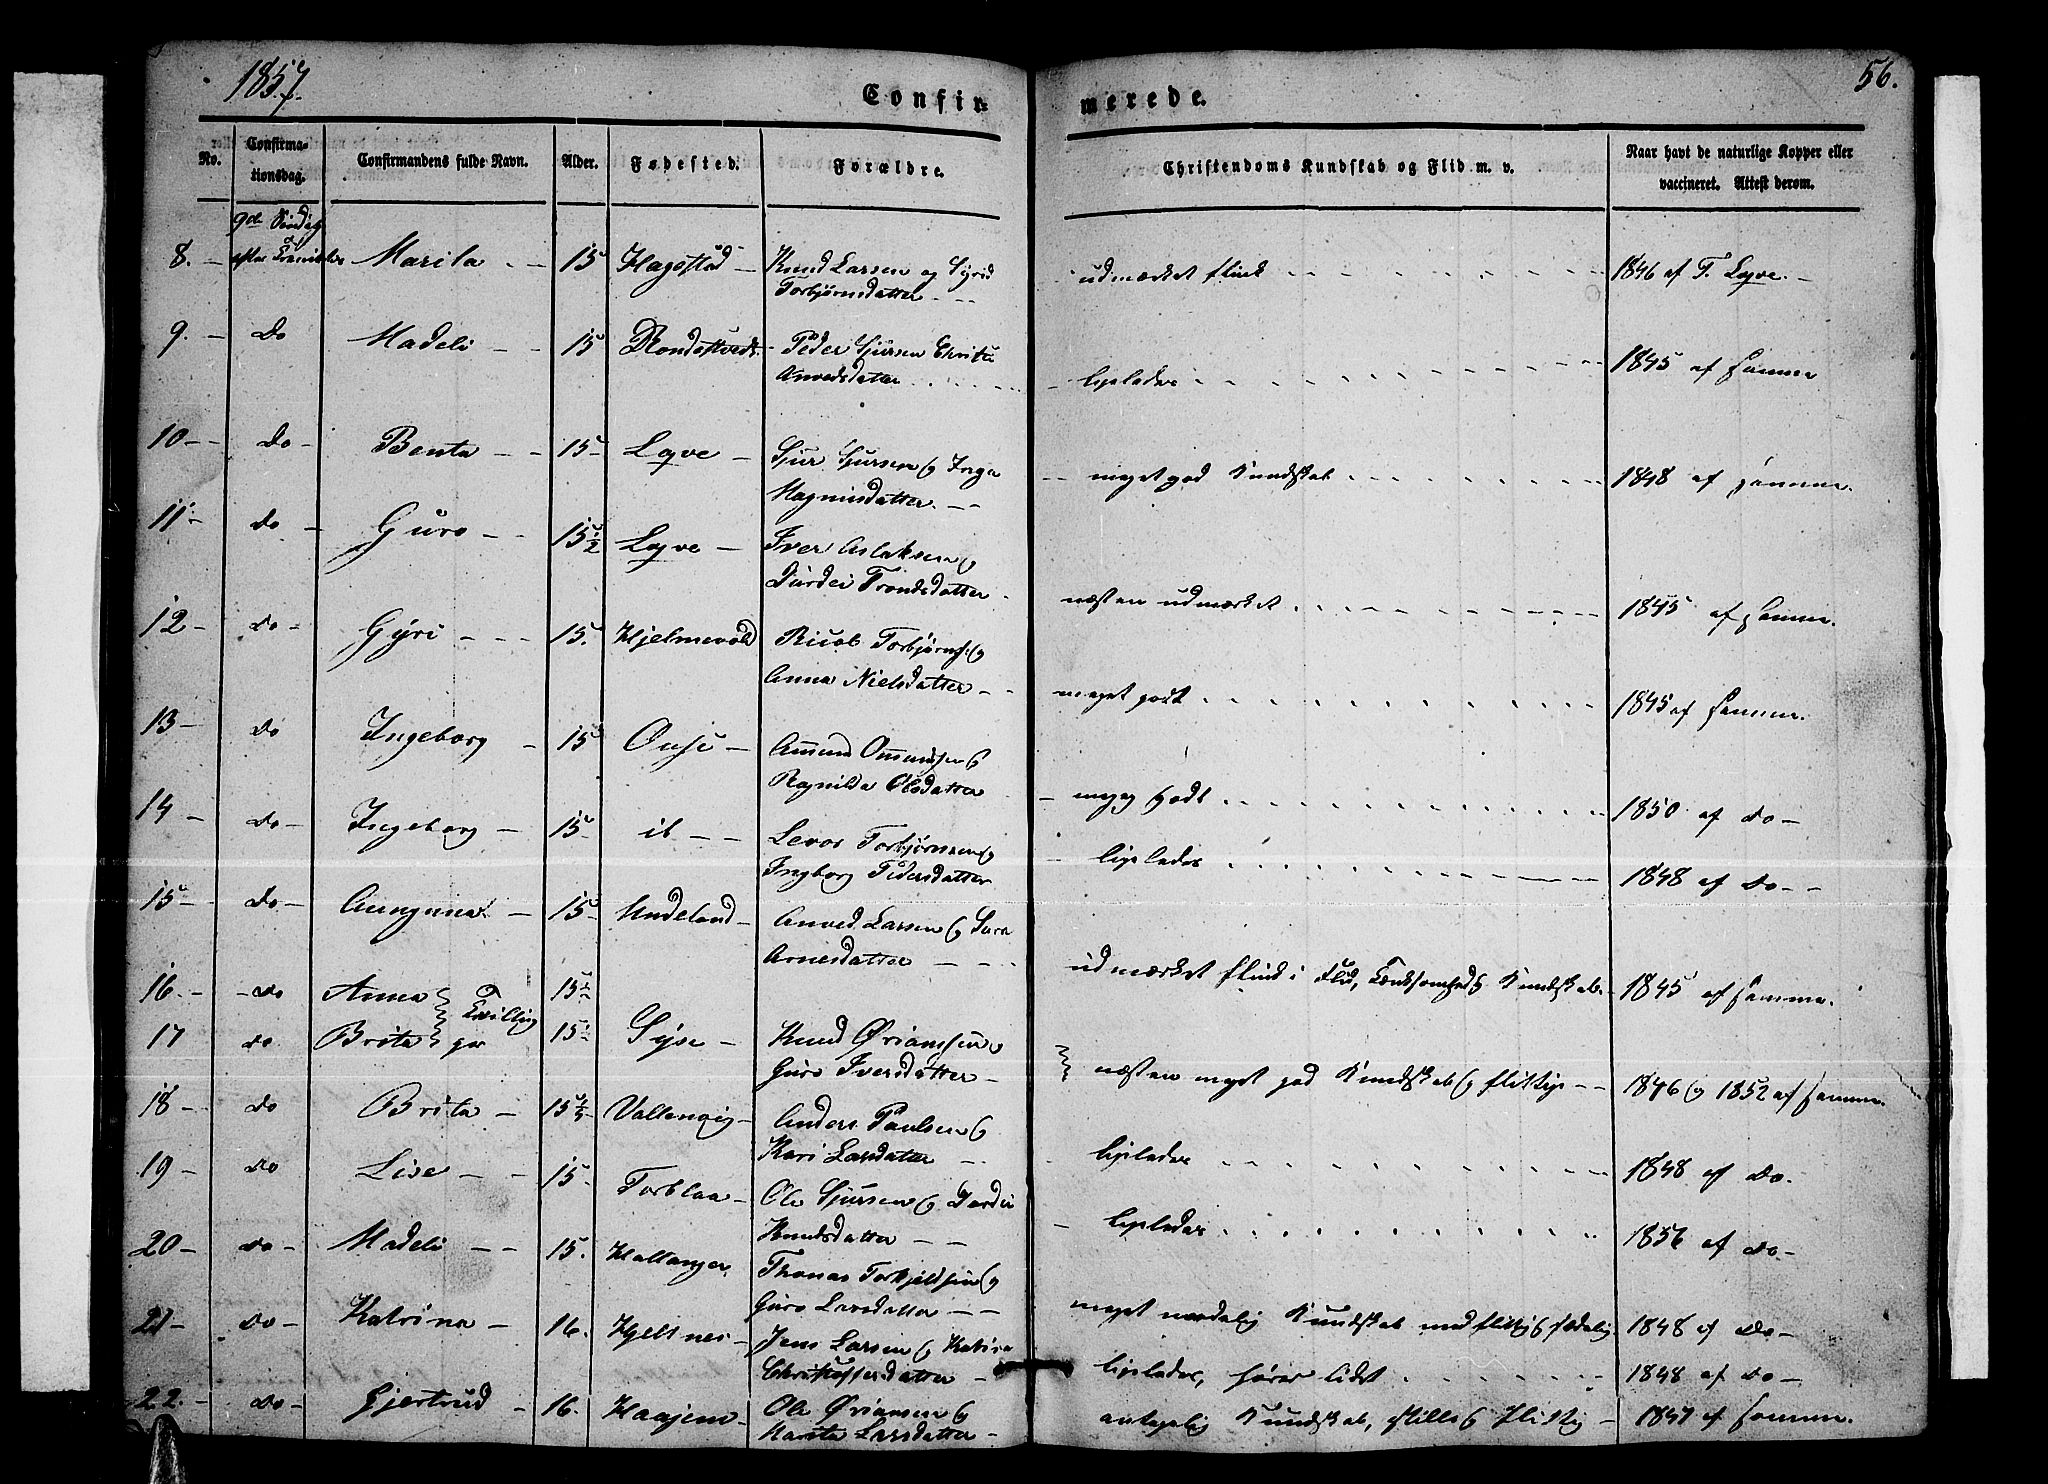 1857.
Confir-
merede.
56.
No.
Confirma-
tionsdag.
Confirmandens fulde Navn.
Alder.
Fødested.
Forældre.
Christendoms Kundskab og Flid m. v.
Naar havt de naturlige Kopper eller
vaccineret. Attest derom.
9de Søndag
8. efter Trinitatis Marita 15 Hagestad Knud Larsen og Syrid
Torbjørnsdatter
udmærket flink 1846 af T. Lqve.
9. Do Madeli 15 Rondestvedt Peder Sjursen Christi
Anvedsdatter
ligeledes 1845 af samme
10 Do Benta 15 Lqve Sjur Sjursen og Inga
Magnusdatter
meget god Kundskab 1848 af samme.
11 do Guro 15 1/2 Lqve Iver Aslaksen og
Durdei Trondsdatter
næsten udmærket 1845 af samme.
12 do Gyri 15. Hjelmevold Torbjørns. og
Anna Nielsdatter
meget godt 1845 af samme.
13 do Ingeborg 15 Onse Amund Omundsen og
Ragnilda Olsdatter
meget godt 1850 af do
14 do Ingeborg 15 ib Torbjørnsen og
Ingborg Pedersdatter
ligeledes 1848 af do
15 do 15 Undeland Anved Larsen og
Arnesdatter
udmærket flink i Flid, Tænksomhed og Kundskab. 1845 af samme.
16. do Anna Tvillin 15 1/2
17 do Brita ger 15 1/2 Syse Knud Ørjansen og
Guro Iversdatter
næsten meget god Kundskab og flittige 1846 og 1852 af samme.
18 do Brita 15 1/2 Vallenvig Anders Paulsen og
Kari Larsdatter
ligeledes 1848 af do.
19 do Lise 15 Torblaa Ole Sjursen og Durdei
Knudsdatter
ligeledes 1856 af do
20 do Madeli 15. Hallanger Thomas Torkjeldsen og
Guro Larsdatter
meget Kundskab med flittig og sædelig 1848 af do
21 do Katrina 16. Hjeltnes Jens Larsen og Katrina
Christoffersdatter
ligeledes, hører lidt 1848 af do
22. do Gjertrud 16. Haajem Ole Ørjansen og
Marita Larsdatter
antagelig Kundskab, stille og flittig 1847 af samme.